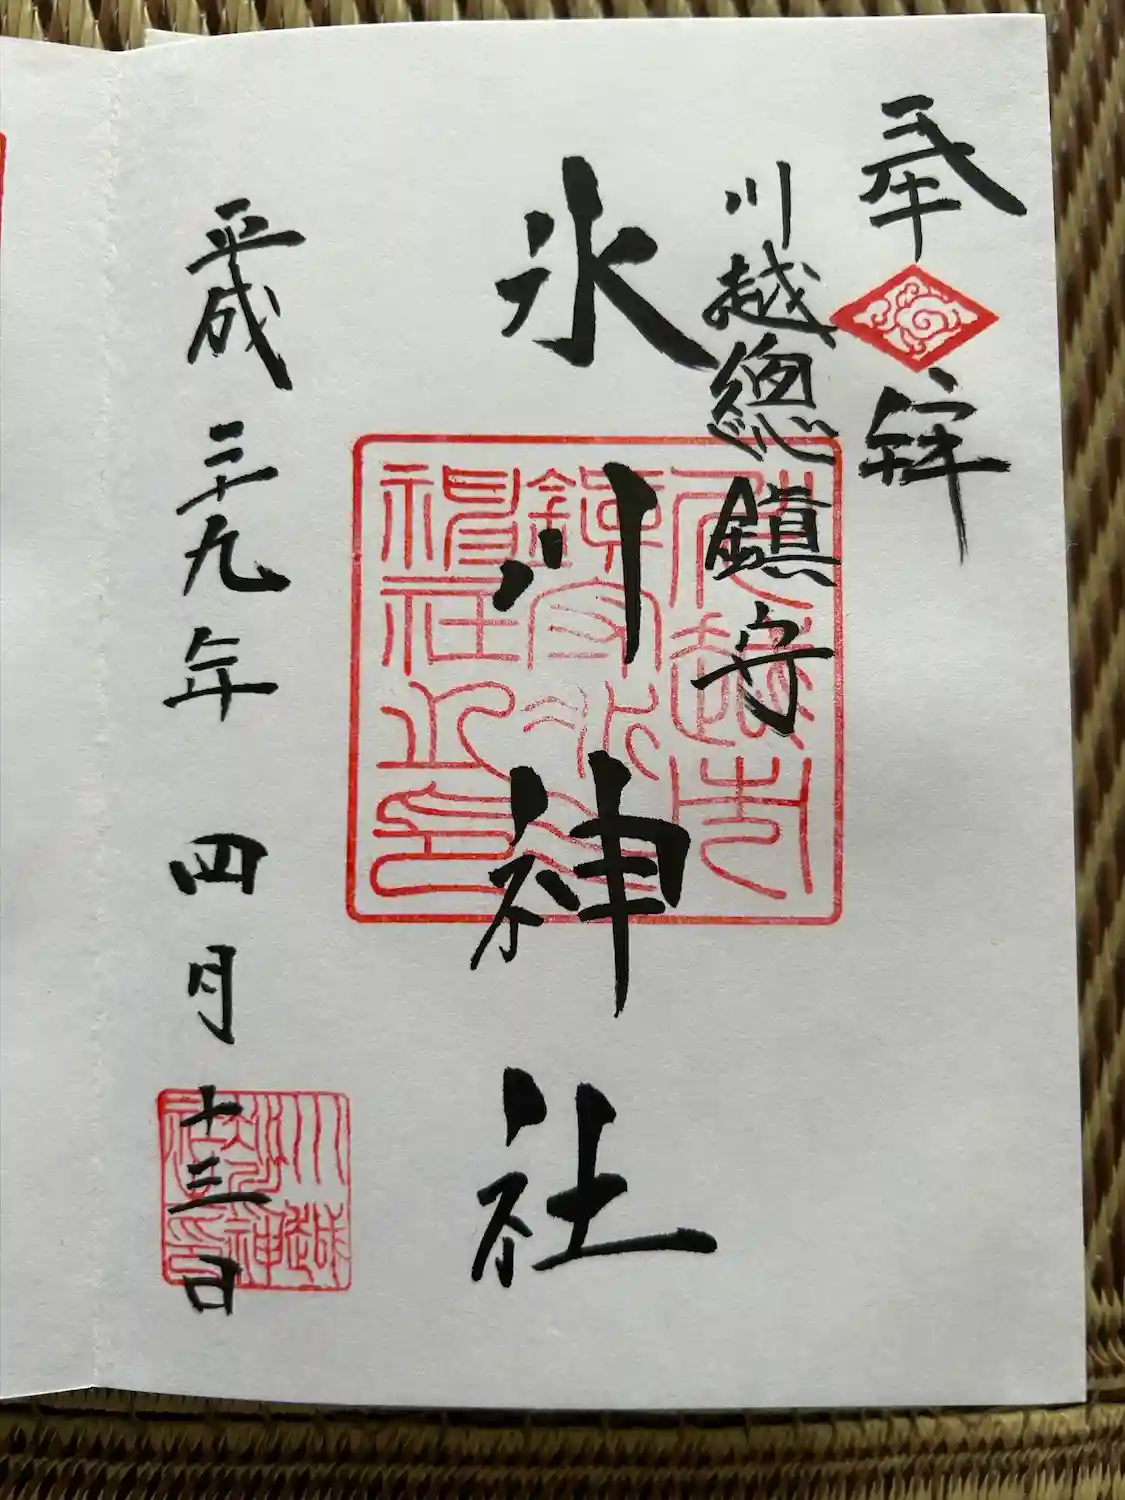 奉拝
川越總鎮守
氷川神社
平成二十九年 四月十三日
川越市
鎮守氷川
神社之印